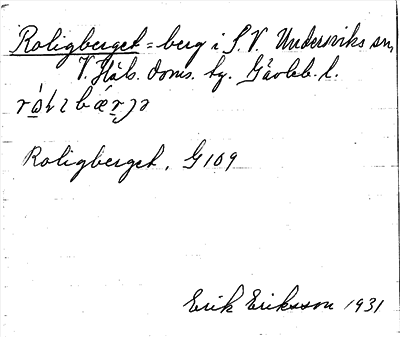 Roligberget = berg i S.V. Undersviks sn,
V. Häls. doms. tg. Gävleb. l.
Roligberget. G109
Erik Eriksson 1931